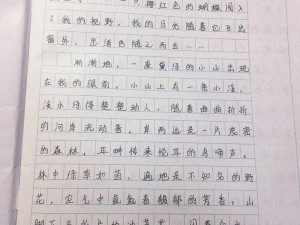 只樱红色的蝴蝶闯入
了我的视野，我的目光随着它飞出
窗外，思绪也随之而去……
渐渐地，一座黛绿的小山出现
在我的眼前，小山上有一条小溪，
溪水淙淙楚楚动人，随着曲曲折折
的河岸流动着。岸两边是一片茂密
的森林，耳畔传来悦耳的鸟啼声。
林中绿草如茵，遍地是不知名的野
花，空气中氤氲着馥郁的芳香。山